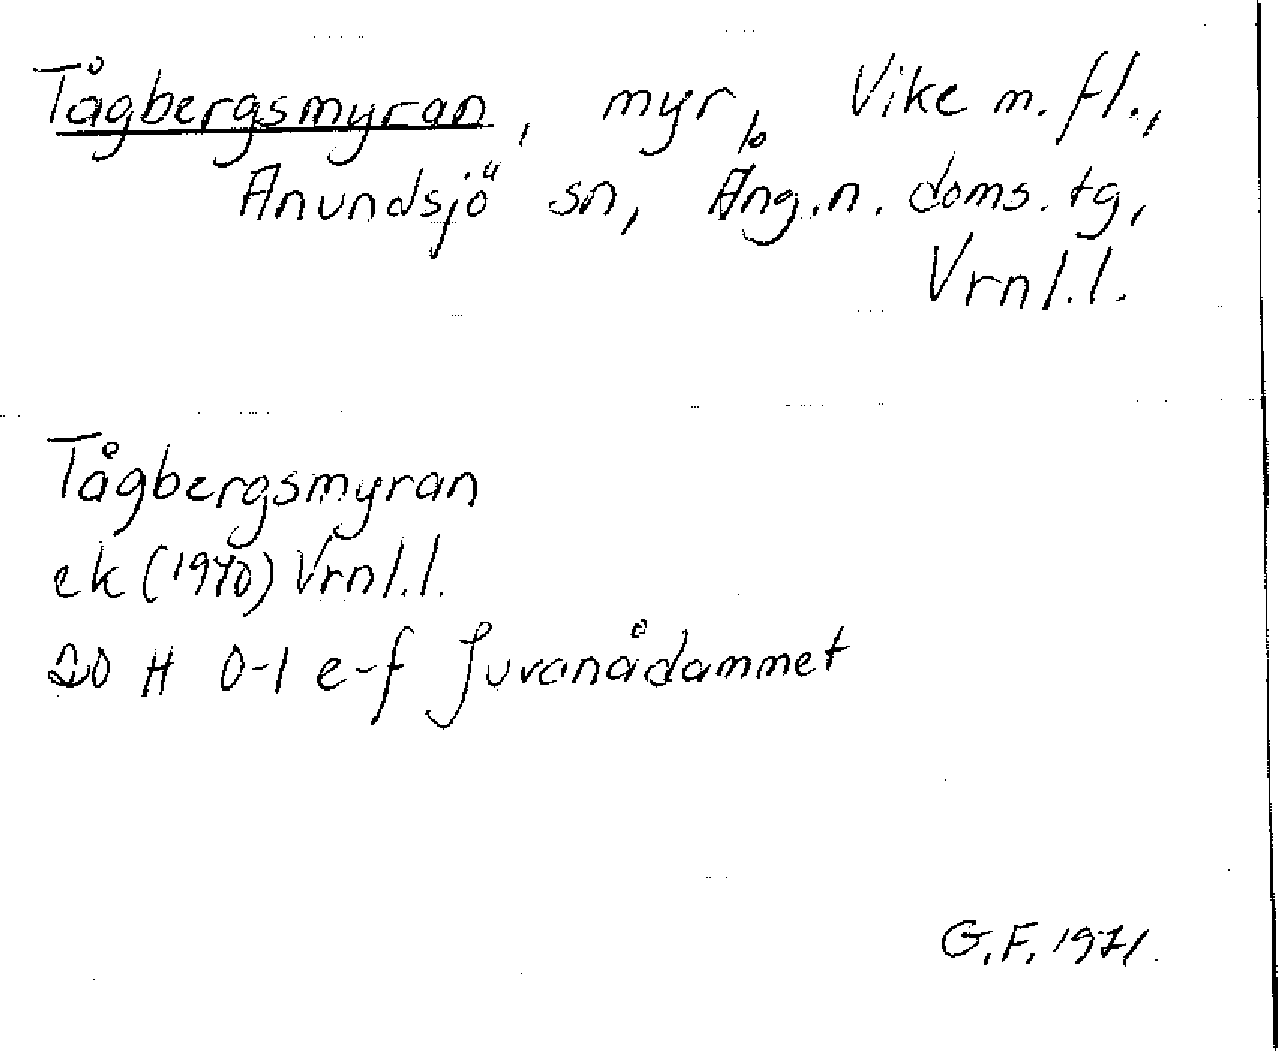 Tågbergsmyran, myr, Vike m. fl.,
Anundsjö sn, Ång.n. doms. tg,
Vrnl.l.
Tågbergsmyran
ek (1970) Vrnl.l.
20 H 0-1 e-f Juvanådammet
G.F. 1971.